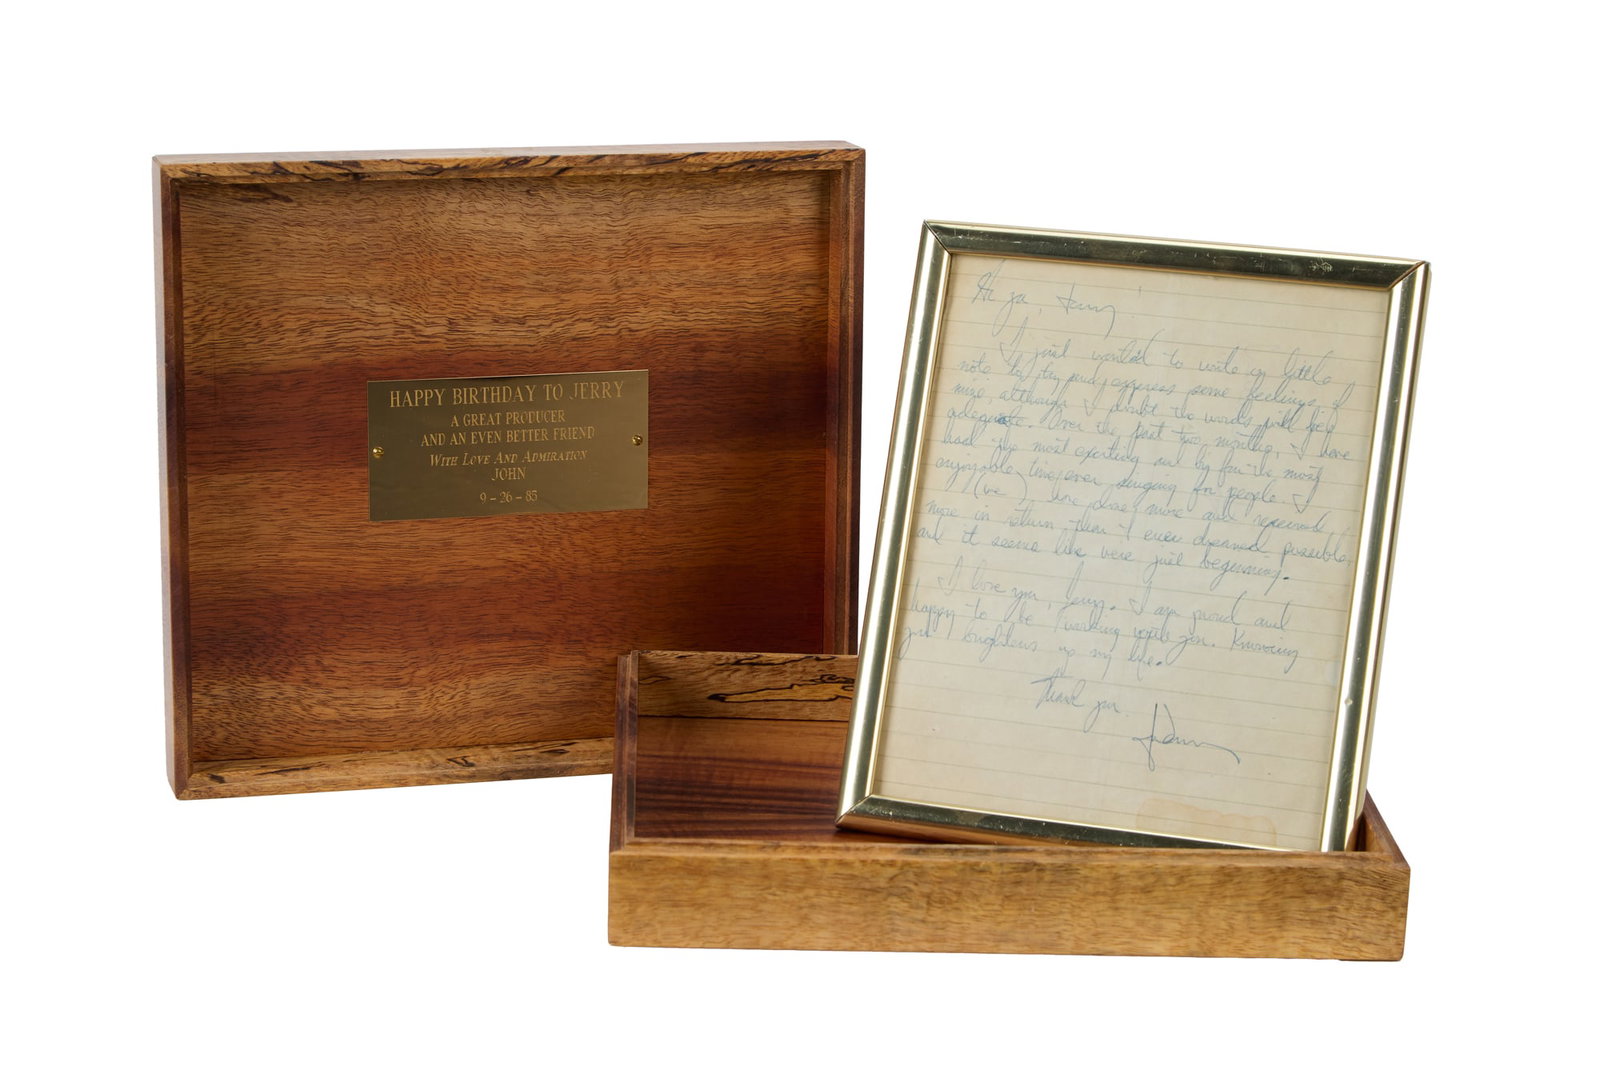 HAPPY BIRTHDAY TO JERRY
A GREAT PRODUCER
AND AN EVEN BETTER FRIEND
WITH LOVE AND ADMIRATION
JOHN
9-26-85
Hi ya, Jerry
I just wanted to write a little
note to try and express some feelings of
mine, although I doubt the words will be
adequate. Over the past two months, I have
had the most exciting and by far the most
enjoyable time ever singing for people. I
(we) have done more and received
more in return than I ever dreamed possible,
and it seems like were just beginning.
I love you, Jerry. I am proud and
happy to be working with you. Knowing
you brightens up my life.
Thank you.